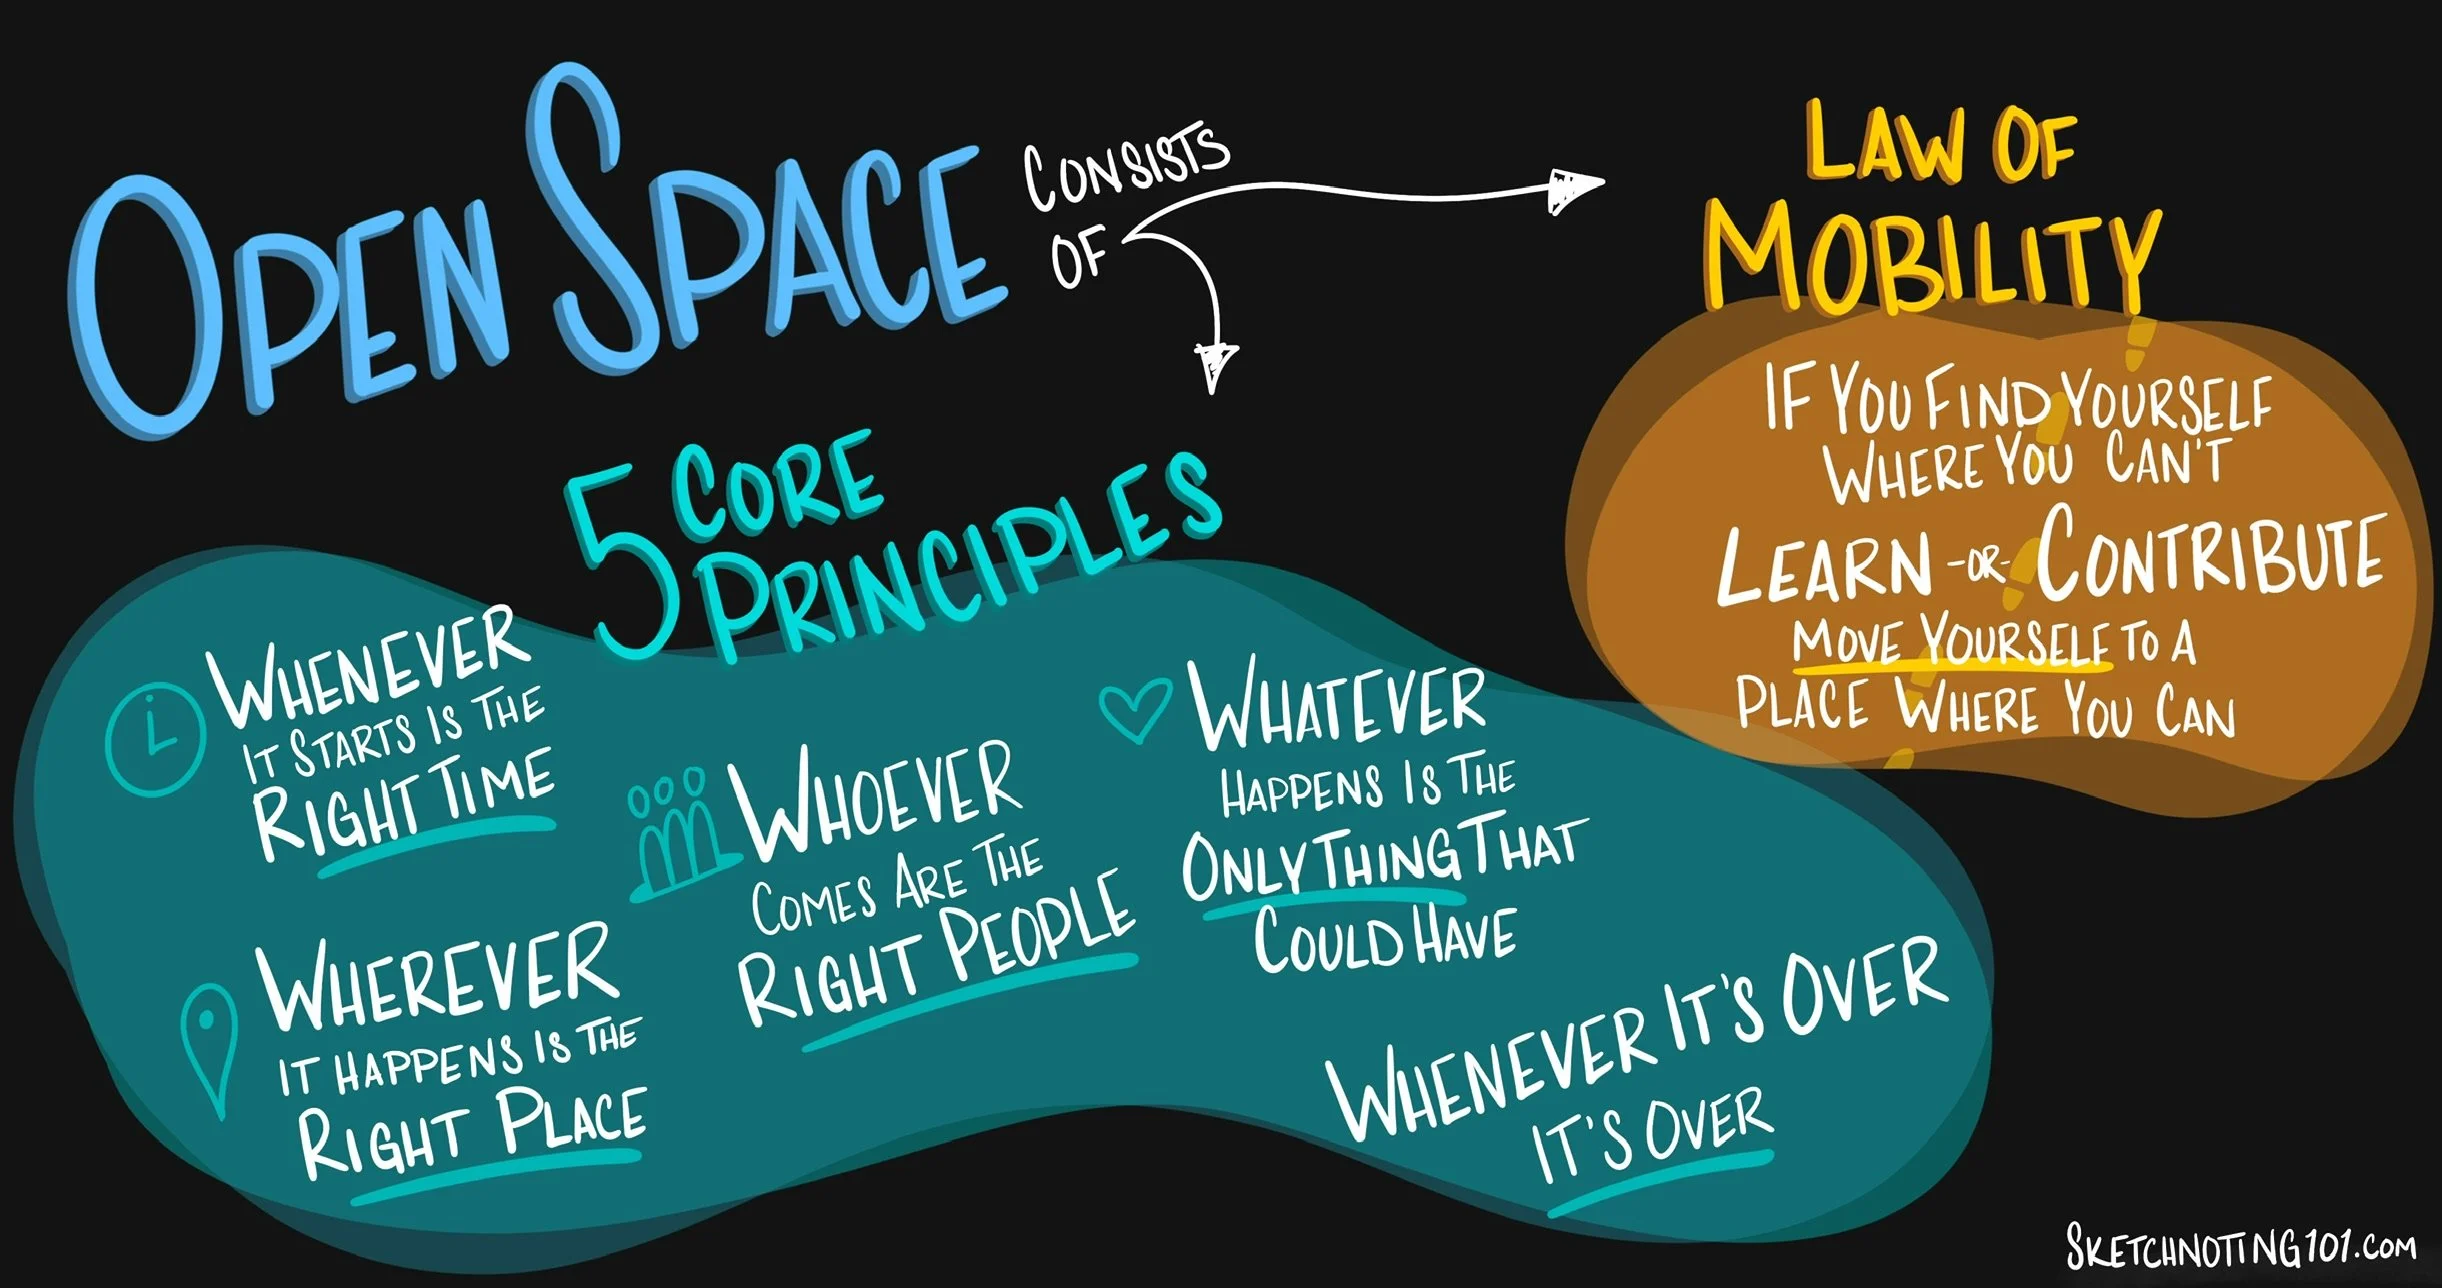 OPEN SPACE
CONSISTS
OF
LAW OF
MOBILITY
IF YOU FIND YOURSELF
WHERE YOU CAN'T
LEARN -OR- CONTRIBUTE
MOVE YOURSELF TO A
PLACE WHERE YOU CAN
5 CORE
PRINCIPLES
WHENEVER
IT STARTS IS THE
RIGHT TIME
WHEREVER
IT HAPPENS IS THE
RIGHT PLACE
WHOEVER
COMES ARE THE
RIGHT PEOPLE
WHATEVER
HAPPENS IS THE
ONLY THING THAT
COULD HAVE
WHENEVER IT'S OVER
IT'S OVER
SKETCHNOTING101.COM